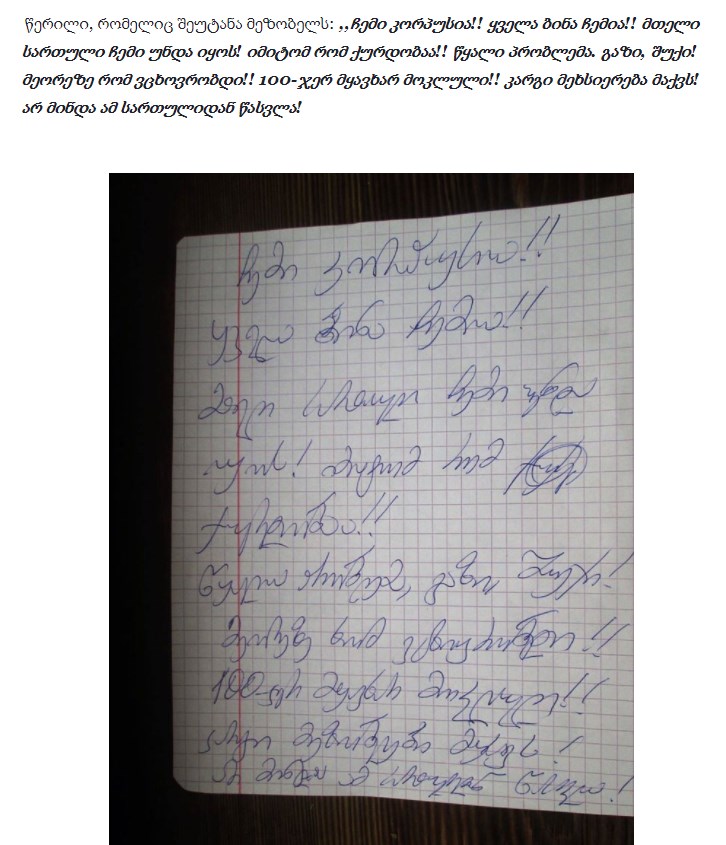 წერილი, რომელიც შეუტანა მეზობელს: ,,ჩემი კორპუსია!! ყველა ბინა ჩემია!! მთელი
სართული ჩემი უნდა იყოს! იმიტომ რომ ქურდობაა!! წყალი პრობლემა. გაზი, შუქი!
მეორეზე რომ ვცხოვრობდი!! 100-ჯერ მყავხარ მოკლული!! კარგი მეხსიერება მაქვს!
არ მინდა ამ სართულიდან წასვლა!
ჩემი კორპუსია!!
ყველა ბინა ჩემია!!
მთელი სართული ჩემი უნდა
იყოს! იმიტომ რომ
ქურდობაა!!
წყალი პრობლემა, გაზი, შუქი!
მეორეზე რომ ვცხოვრობდი!!
100-ჯერ მყავხარ მოკლული!!
კარგი მეხსიერება მაქვს!
არ მინდა ამ სართულიდან წასვლა!